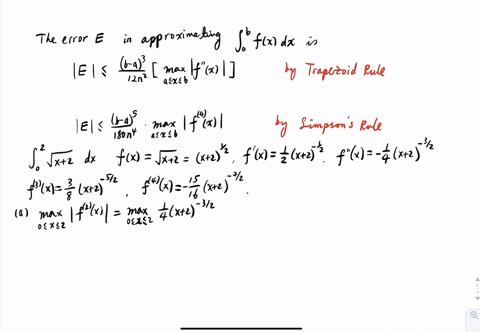 The error E in approximating ∫₀ᵇ f(x) dx is
|E| ≤ (b-a)³/12n² [ max a≤x≤b |f''(x)| ] by Trapezoid Rule
|E| ≤ (b-a)⁵/180n⁴ · max a≤x≤b |f⁽⁴⁾(x)| by Simpson's Rule
∫₀² √x+2 dx f(x) = √x+2 = (x+2)^1/2, f'(x) = 1/2 (x+2)^-1/2, f''(x) = -1/4 (x+2)^-3/2
f⁽³⁾(x) = 3/8 (x+2)^-5/2, f⁽⁴⁾(x) = -15/16 (x+2)^-7/2.
(a) max 0≤x≤2 |f⁽²⁾(x)| = max 0≤x≤2 1/4 (x+2)^-3/2